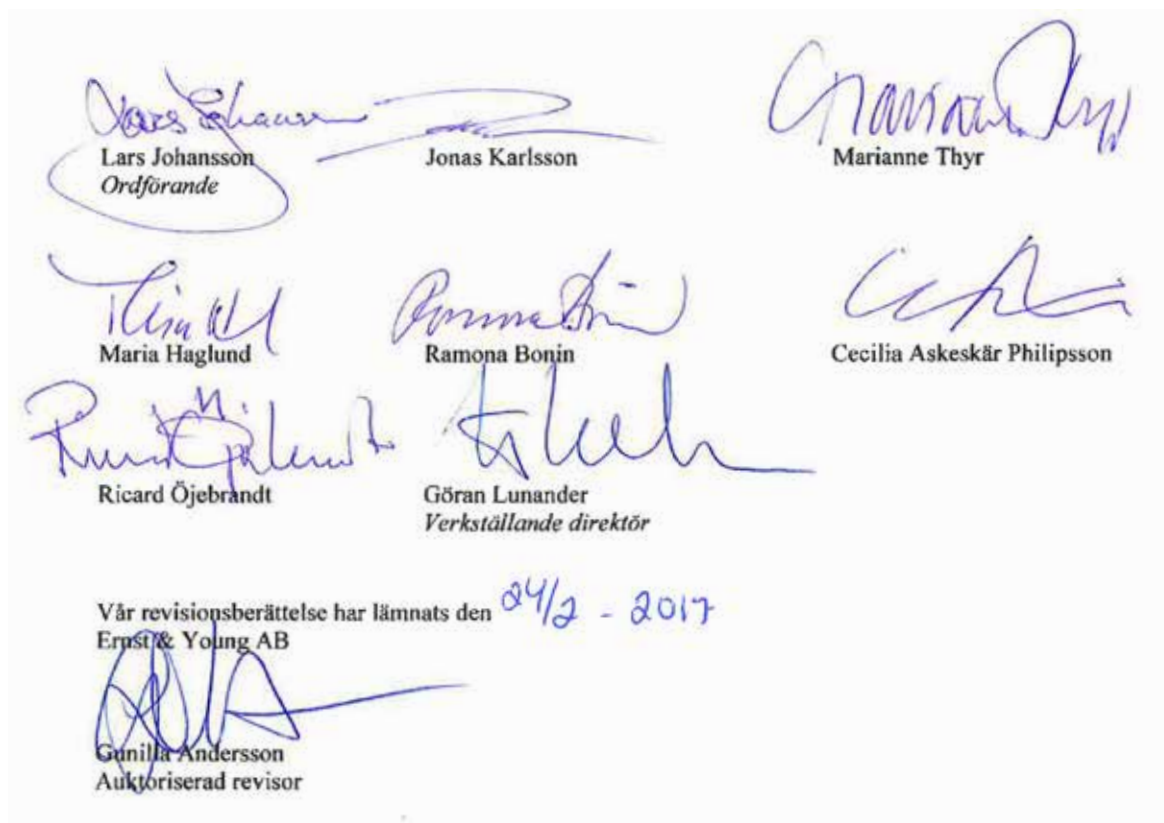 Lars Johansson
Jonas Karlsson
Marianne Thyr
Ordförande
Maria Haglund
Ramona Bonin
Cecilia Askeskär Philipsson
Ricard Öjebrandt
Göran Lunander
Verkställande direktör
Vår revisionsberättelse har lämnats den 24/2 - 2017
Ernst & Young AB
Gunilla Andersson
Auktoriserad revisor